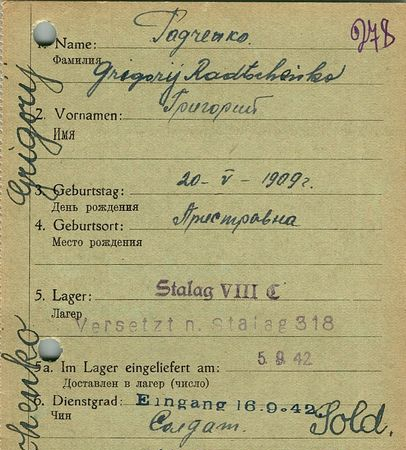 278
1. Name: Радченко.
Фамилия
Grigorij Radtschenko
2. Vornamen: Григорий
Имя
3. Geburtstag: 20-V-1909 г.
День рождения
4. Geburtsort:
Место рождения
5. Lager: Stalag VIII C
Лагерь
Versetzt n. Stalag 318
5a. Im Lager eingeliefert am: 5.9.42
Доставлен в лагерь (число)
6. Dienstgrad: Eingang 16.9.42.
Чин Солдат. Sold.
Grigorij